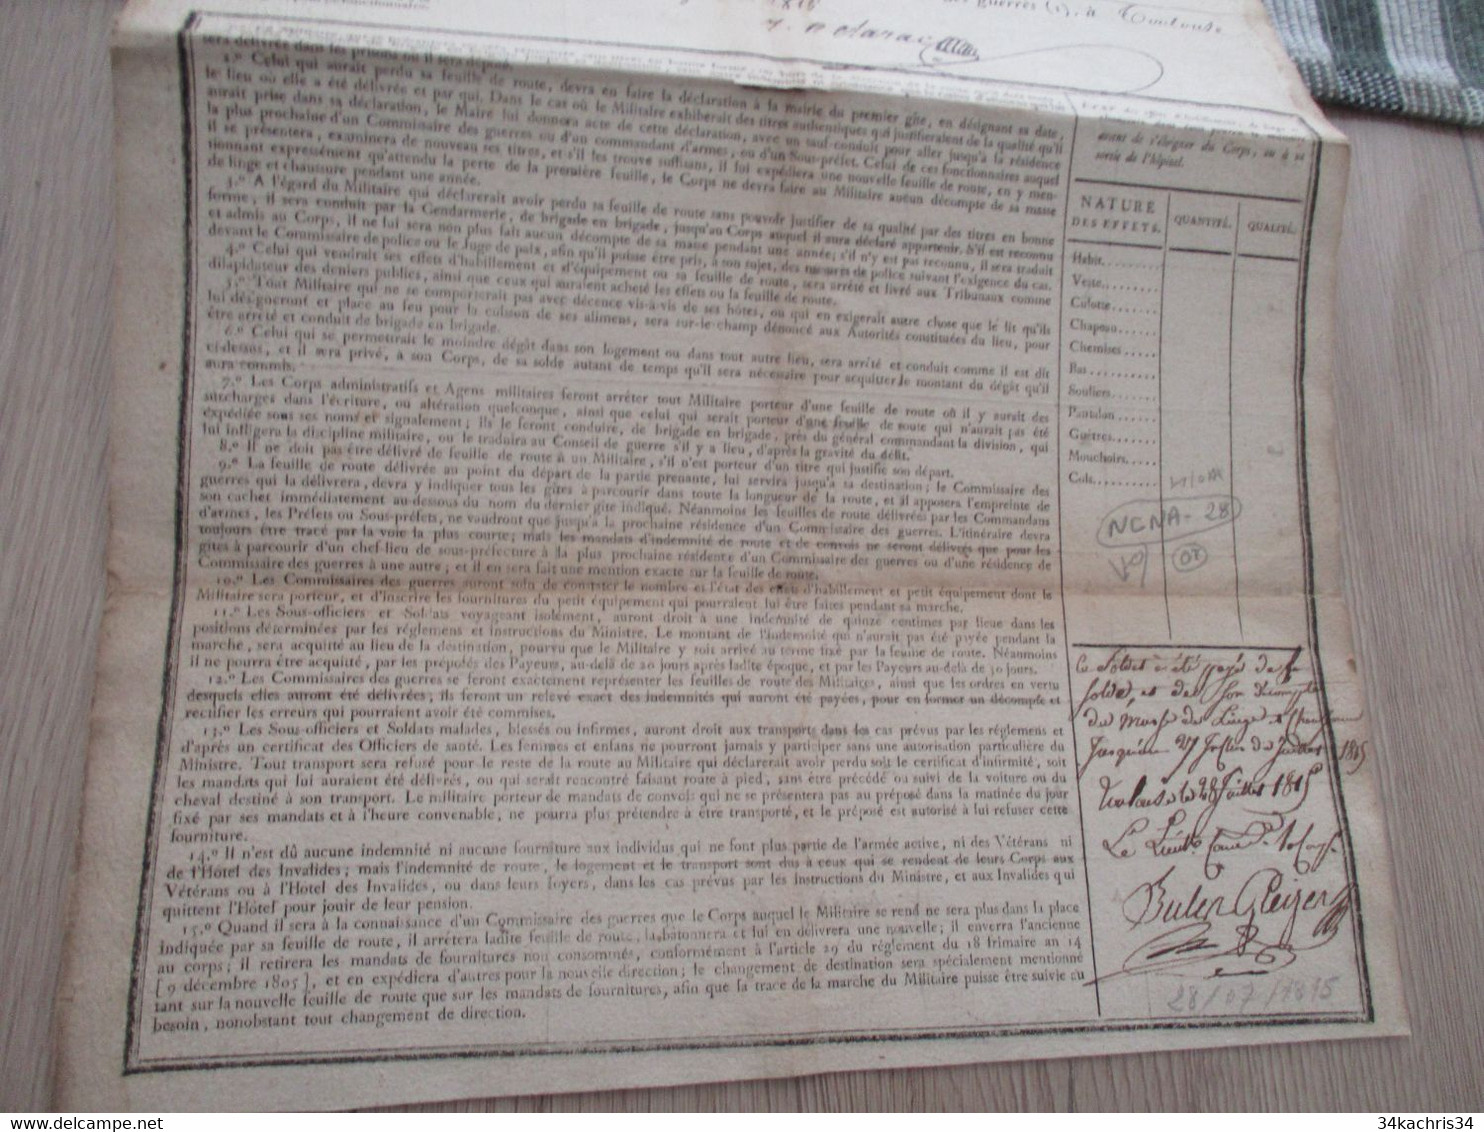 des guerres (1), à Toulouse
1815
sera délivrée dans les prisons où il sera déposé.
2.° Celui qui aurait perdu sa feuille de route, devra en faire la déclaration à la mairie du premier gîte, en désignant sa date,
le lieu où elle a été délivrée et par qui. Dans le cas où le Militaire exhiberait des titres authentiques qui justifieraient de la qualité qu'il
aurait prise dans sa déclaration, le Maire lui donnera acte de cette déclaration, avec un sauf-conduit pour aller jusqu'à la résidence
la plus prochaine d'un Commissaire des guerres ou d'un commandant d'armes, ou d'un Sous-préfet. Celui de ces fonctionnaires auquel
il se présentera, examinera de nouveau ses titres, et s'il les trouve suffisans, il lui expédiera une nouvelle feuille de route, en y men-
tionnant expressément qu'attendu la perte de la première feuille, le Corps ne devra faire au Militaire aucun décompte de sa masse
de linge et chaussure pendant une année.
3.° A l'égard du Militaire qui déclarerait avoir perdu sa feuille de route sans pouvoir justifier de sa qualité par des titres en bonne
forme, il sera conduit par la Gendarmerie, de brigade en brigade, jusqu'au Corps auquel il aura déclaré appartenir. S'il est reconnu
et admis au Corps, il ne lui sera non plus fait aucun décompte de sa masse pendant une année; s'il n'y est pas reconnu, il sera traduit
devant le Commissaire de police ou le Juge de paix, afin qu'il puisse être pris, à son sujet, des mesures de police suivant l'exigence du cas.
4.° Celui qui vendrait ses effets d'habillement et d'équipement ou sa feuille de route, sera arrêté et livré aux Tribunaux comme
dilapidateur des deniers publics, ainsi que ceux qui auraient acheté les effets ou la feuille de route.
5.° Tout Militaire qui ne se comporterait pas avec décence vis-à-vis de ses hôtes, ou qui en exigerait autre chose que le lit qu'ils
lui désigneront et place au feu pour la cuison de ses alimens, sera sur-le-champ dénoncé aux Autorités constituées du lieu, pour
être arrêté et conduit de brigade en brigade.
6.° Celui qui se permettrait le moindre dégât dans son logement ou dans tout autre lieu, sera arrêté et conduit comme il est dit
ci-dessus, et il sera privé, à son Corps, de sa solde autant de temps qu'il sera nécessaire pour acquitter le montant du dégât qu'il
aura commis.
7.° Les Corps administratifs et Agens militaires feront arrêter tout Militaire porteur d'une feuille de route où il y aurait des
surcharges dans l'écriture, ou altération quelconque, ainsi que celui qui serait porteur d'une feuille de route qui n'aurait pas été
expédiée sous ses noms et signalement; ils le feront conduire, de brigade en brigade, près du général commandant la division, qui
lui infligera la discipline militaire, ou le traduira au Conseil de guerre s'il y a lieu, d'après la gravité du délit.
8.° Il ne doit pas être délivré de feuille de route à un Militaire, s'il n'est porteur d'un titre qui justifie son départ.
9.° La feuille de route délivrée au point du départ de la partie prenante, lui servira jusqu'à sa destination; le Commissaire des
guerres qui la délivrera, devra y indiquer tous les gîtes à parcourir dans toute la longueur de la route, et il apposera l'empreinte de
son cachet immédiatement au-dessous du nom du dernier gîte indiqué. Néanmoins les feuilles de route délivrées par les Commandans
d'armes, les Préfets ou Sous-préfets, ne vaudront que jusqu'à la prochaine résidence d'un Commissaire des guerres. L'itinéraire devra
toujours être tracé par la voie la plus courte; mais les mandats d'indemnité de route et de convois ne seront délivrés que pour les
gîtes à parcourir d'un chef-lieu de sous-préfecture à la plus prochaine résidence d'un Commissaire des guerres ou d'une résidence de
Commissaire des guerres à une autre; et il en sera fait une mention exacte sur la feuille de route.
10.° Les Commissaires des guerres auront soin de constater le nombre et l'état des effets d'habillement et petit équipement dont le
Militaire sera porteur, et d'inscrire les fournitures du petit équipement qui pourraient lui être faites pendant sa marche.
11.° Les Sous-officiers et Soldats voyageant isolément, auront droit à une indemnité de quinze centimes par lieue dans les
positions déterminées par les réglemens et instructions du Ministre. Le montant de l'indemnité qui n'aurait pas été payée pendant la
marche, sera acquitté au lieu de la destination, pourvu que le Militaire y soit arrivé au terme fixé par la feuille de route. Néanmoins
il ne pourra être acquitté, par les préposés des Payeurs, au-delà de 20 jours après ladite époque, et par les Payeurs au-delà de 30 jours.
12.° Les Commissaires des guerres se feront exactement représenter les feuilles de route des Militaires, ainsi que les ordres en vertu
desquels elles auront été délivrées; ils feront un relevé exact des indemnités qui auront été payées, pour en former un décompte et
rectifier les erreurs qui pourraient avoir été commises.
13.° Les Sous-officiers et Soldats malades, blessés ou infirmes, auront droit aux transports dans les cas prévus par les réglemens et
d'après un certificat des Officiers de santé. Les femmes et enfans ne pourront jamais y participer sans une autorisation particulière du
Ministre. Tout transport sera refusé pour le reste de la route au Militaire qui déclarerait avoir perdu soit le certificat d'infirmité, soit
les mandats qui lui auraient été délivrés, ou qui serait rencontré faisant route à pied, sans être précédé ou suivi de la voiture ou du
cheval destiné à son transport. Le militaire porteur de mandats de convois qui ne se présentera pas au préposé dans la matinée du jour
fixé par ses mandats et à l'heure convenable, ne pourra plus prétendre à être transporté, et le préposé est autorisé à lui refuser cette
fourniture.
14.° Il n'est dû aucune indemnité ni aucune fourniture aux individus qui ne font plus partie de l'armée active, ni des Vétérans ni
de l'Hôtel des Invalides; mais l'indemnité de route, le logement et le transport sont dus à ceux qui se rendent de leurs Corps aux
Vétérans ou à l'Hôtel des Invalides, ou dans leurs foyers, dans les cas prévus par les instructions du Ministre, et aux Invalides qui
quittent l'Hôtel pour jouir de leur pension.
15.° Quand il sera à la connaissance d'un Commissaire des guerres que le Corps auquel le Militaire se rend ne sera plus dans la place
indiquée par sa feuille de route, il arrêtera ladite feuille de route, la bâtonnera et lui en délivrera une nouvelle; il enverra l'ancienne
au corps; il retirera les mandats de fournitures non consommés, conformément à l'article 29 du réglement du 18 frimaire an 14
[9 décembre 1805], et en expédiera d'autres pour la nouvelle direction; le changement de destination sera spécialement mentionné
tant sur la nouvelle feuille de route que sur les mandats de fournitures, afin que la trace de la marche du Militaire puisse être suivie au
besoin, nonobstant tout changement de direction.
avant de s'éloigner du Corps, ou à sa
sortie de l'hôpital.
NATURE DES EFFETS. QUANTITÉ. QUALITÉ.
Habit
Veste
Culotte
Chapeau
Chemises
Bas
Souliers
Pantalon
Guêtres
Mouchoirs
Cols
NCNA-28
Ce Soldat a été payé de sa
solde, et de son décompte
de Masse de Linge et Chaussure
Jusqu'au 27 Juillet 1815
Toulouse le 28 Juillet 1815
Le Lieut.
28/07/1815
34kachris34
34kachris34